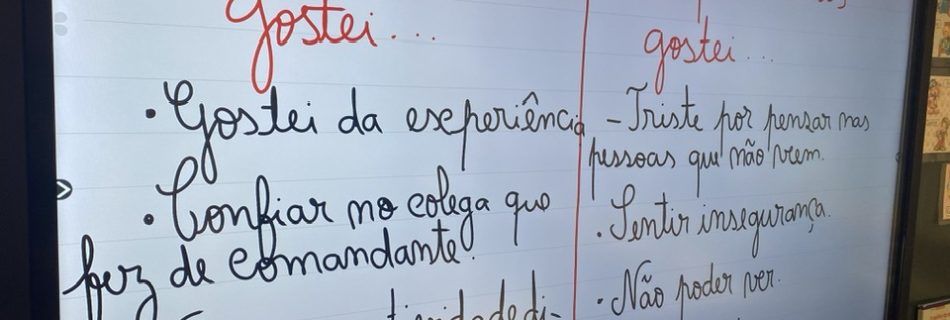 gostei...
• Gostei da experiência
• Confiar no colega que
fez de comandante.
gostei...
- Triste por pensar nas
pessoas que não veem.
• Sentir insegurança.
• Não poder ver.